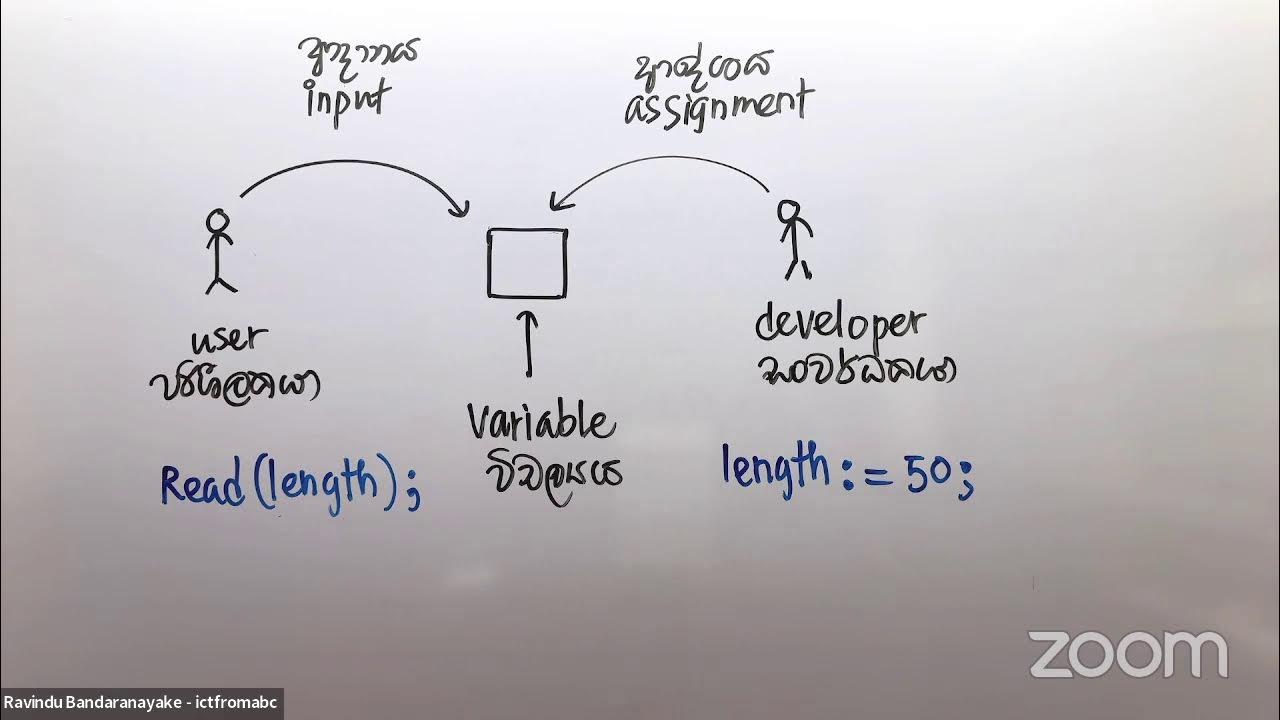 ආදානය
input
ආදේශය
assignment
user
පරිශීලකයා
Read (length);
Variable
විචල්‍යය
developer
සංවර්ධකයා
length := 50;
zoom
Ravindu Bandaranayake - ictfromabc